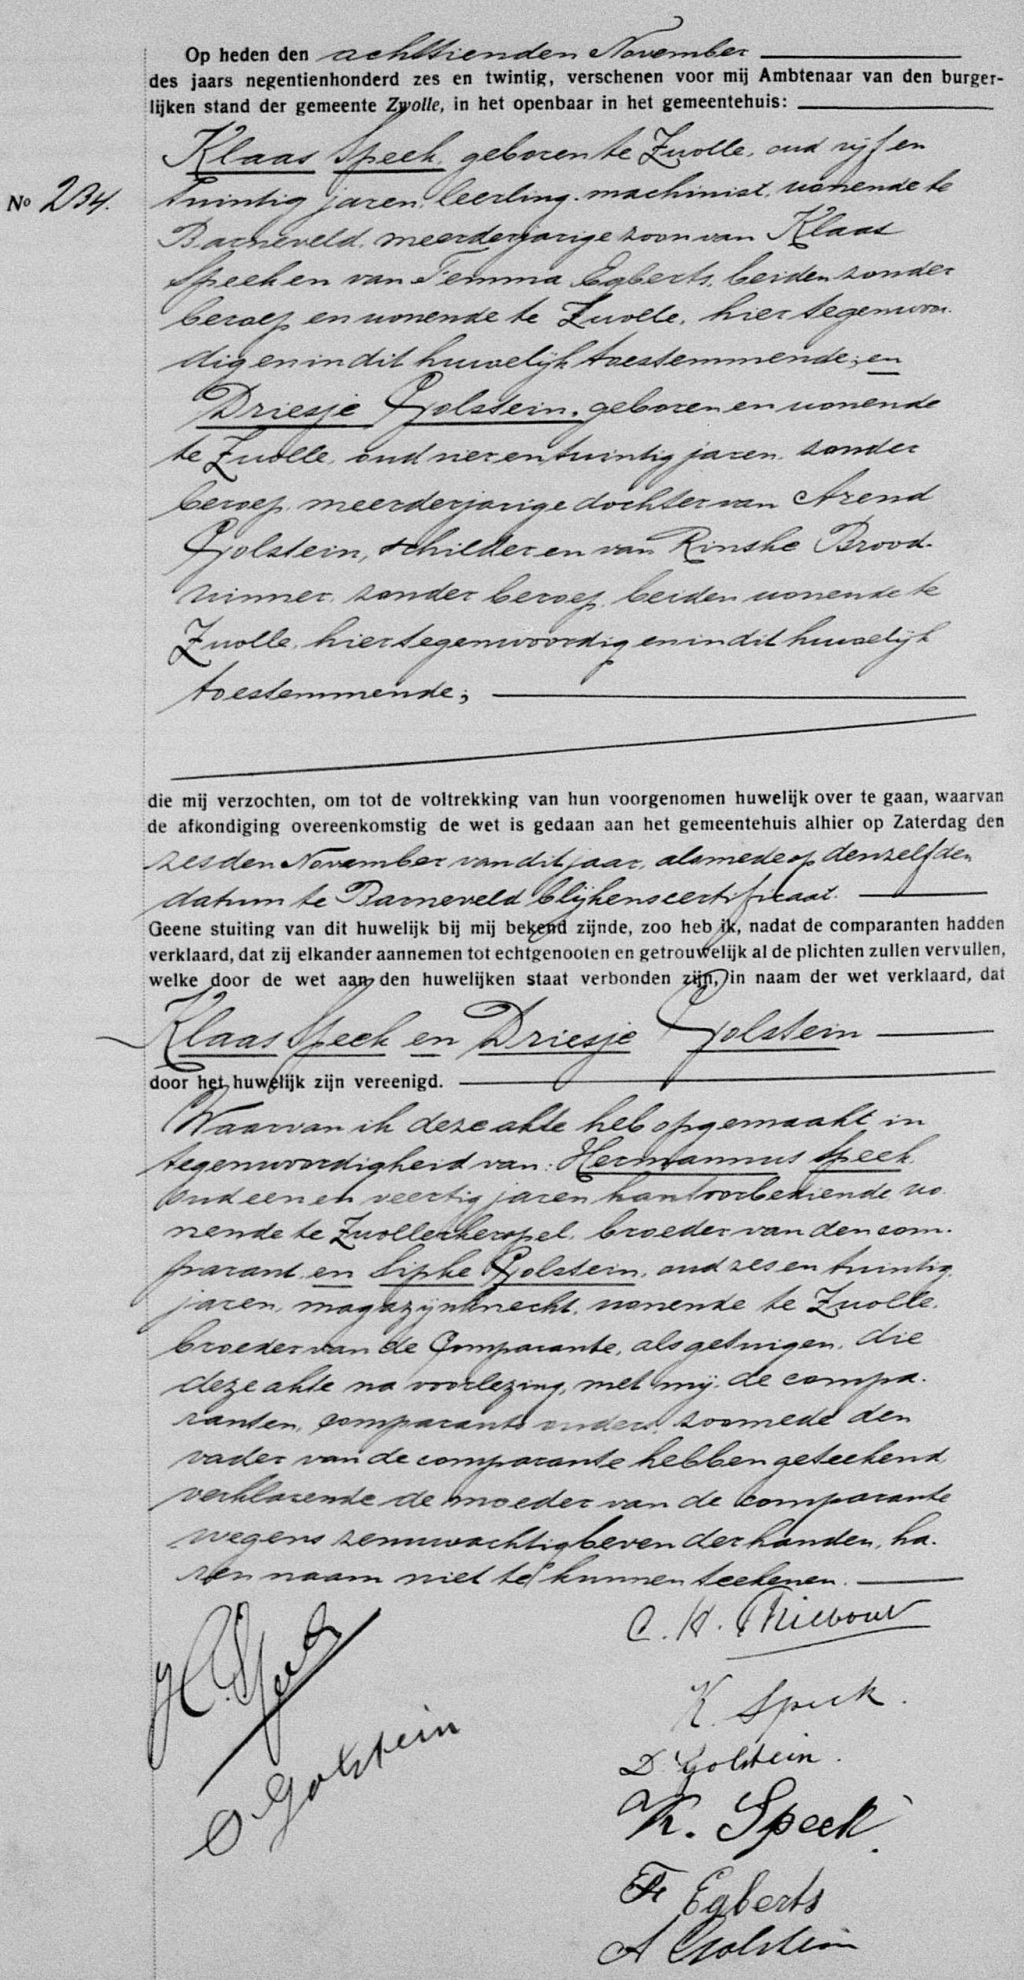 Op heden den achttienden November
des jaars negentienhonderd zes en twintig, verschenen voor mij Ambtenaar van den burger-
lijken stand der gemeente Zwolle, in het openbaar in het gemeentehuis:
Klaas Speek, geboren te Zwolle, oud vijf en
No 234.
twintig jaren, leerling-machinist, wonende te
Barneveld, meerderjarige zoon van Klaas
Speek en van Femma Egberts, beiden zonder
beroep en wonende te Zwolle, hier tegenwoor-
dig en in dit huwelijk toestemmende; en
Driesje Golstein, geboren en wonende
te Zwolle, oud vier en twintig jaren, zonder
beroep, meerderjarige dochter van Arend
Golstein, schilder en van Rinske Brood-
winner, zonder beroep, beiden wonende te
Zwolle, hier tegenwoordig en in dit huwelijk
toestemmende;
die mij verzochten, om tot de voltrekking van hun voorgenomen huwelijk over te gaan, waarvan
de afkondiging overeenkomstig de wet is gedaan aan het gemeentehuis alhier op Zaterdag den
zesden November van dit jaar, alsmede op denzelfden
datum te Barneveld blijkens certificaat.
Geene stuiting van dit huwelijk bij mij bekend zijnde, zoo heb ik, nadat de comparanten hadden
verklaard, dat zij elkander aannemen tot echtgenooten en getrouwelijk al de plichten zullen vervullen,
welke door de wet aan den huwelijken staat verbonden zijn, in naam der wet verklaard, dat
Klaas Speek en Driesje Golstein
door het huwelijk zijn vereenigd.
Waarvan ik deze akte heb opgemaakt in
tegenwoordigheid van: Hermannus Speek,
oud een en veertig jaren, kantoorbediende wo-
nende te Zwollerkerspel, broeder van den com-
parant en Sipke Golstein, oud zes en twintig
jaren, magazijnknecht, wonende te Zwolle,
broeder van de Comparante, als getuigen, die
deze akte na voorlezing, met mij, de compa-
ranten, comparants ouders, zoomede den
vader van de comparante hebben geteekend,
verklarende de moeder van de comparante
wegens zenuwachtig beven der handen, ha-
ren naam niet te kunnen teekenen.
C. H. Thiebout
H. Speek
K. Speek.
S Golstein
D. Golstein.
K. Speek.
F Egberts
A Golstein